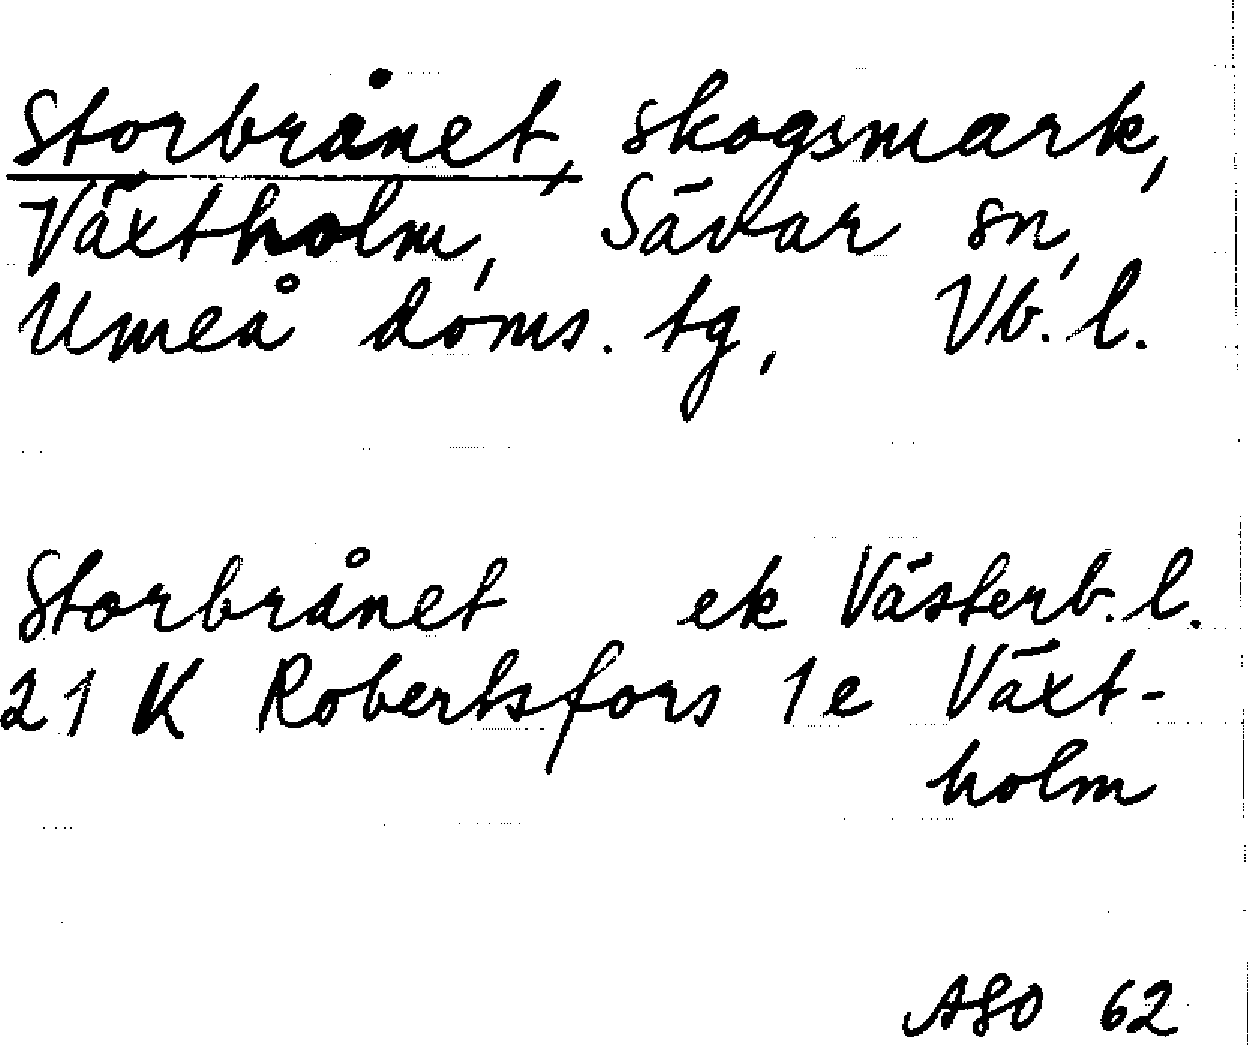 Storbrånet, skogsmark,
Växtholm, Sävar sn,
Umeå doms. tg, Vb. l.
Storbrånet ek Västerb. l.
21 K Robertsfors 1e Växt-
holm
ASO 62